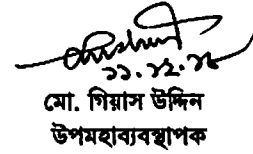 ১১.১২.১৮
মো. গিয়াস উদ্দিন
উপমহাব্যবস্থাপক